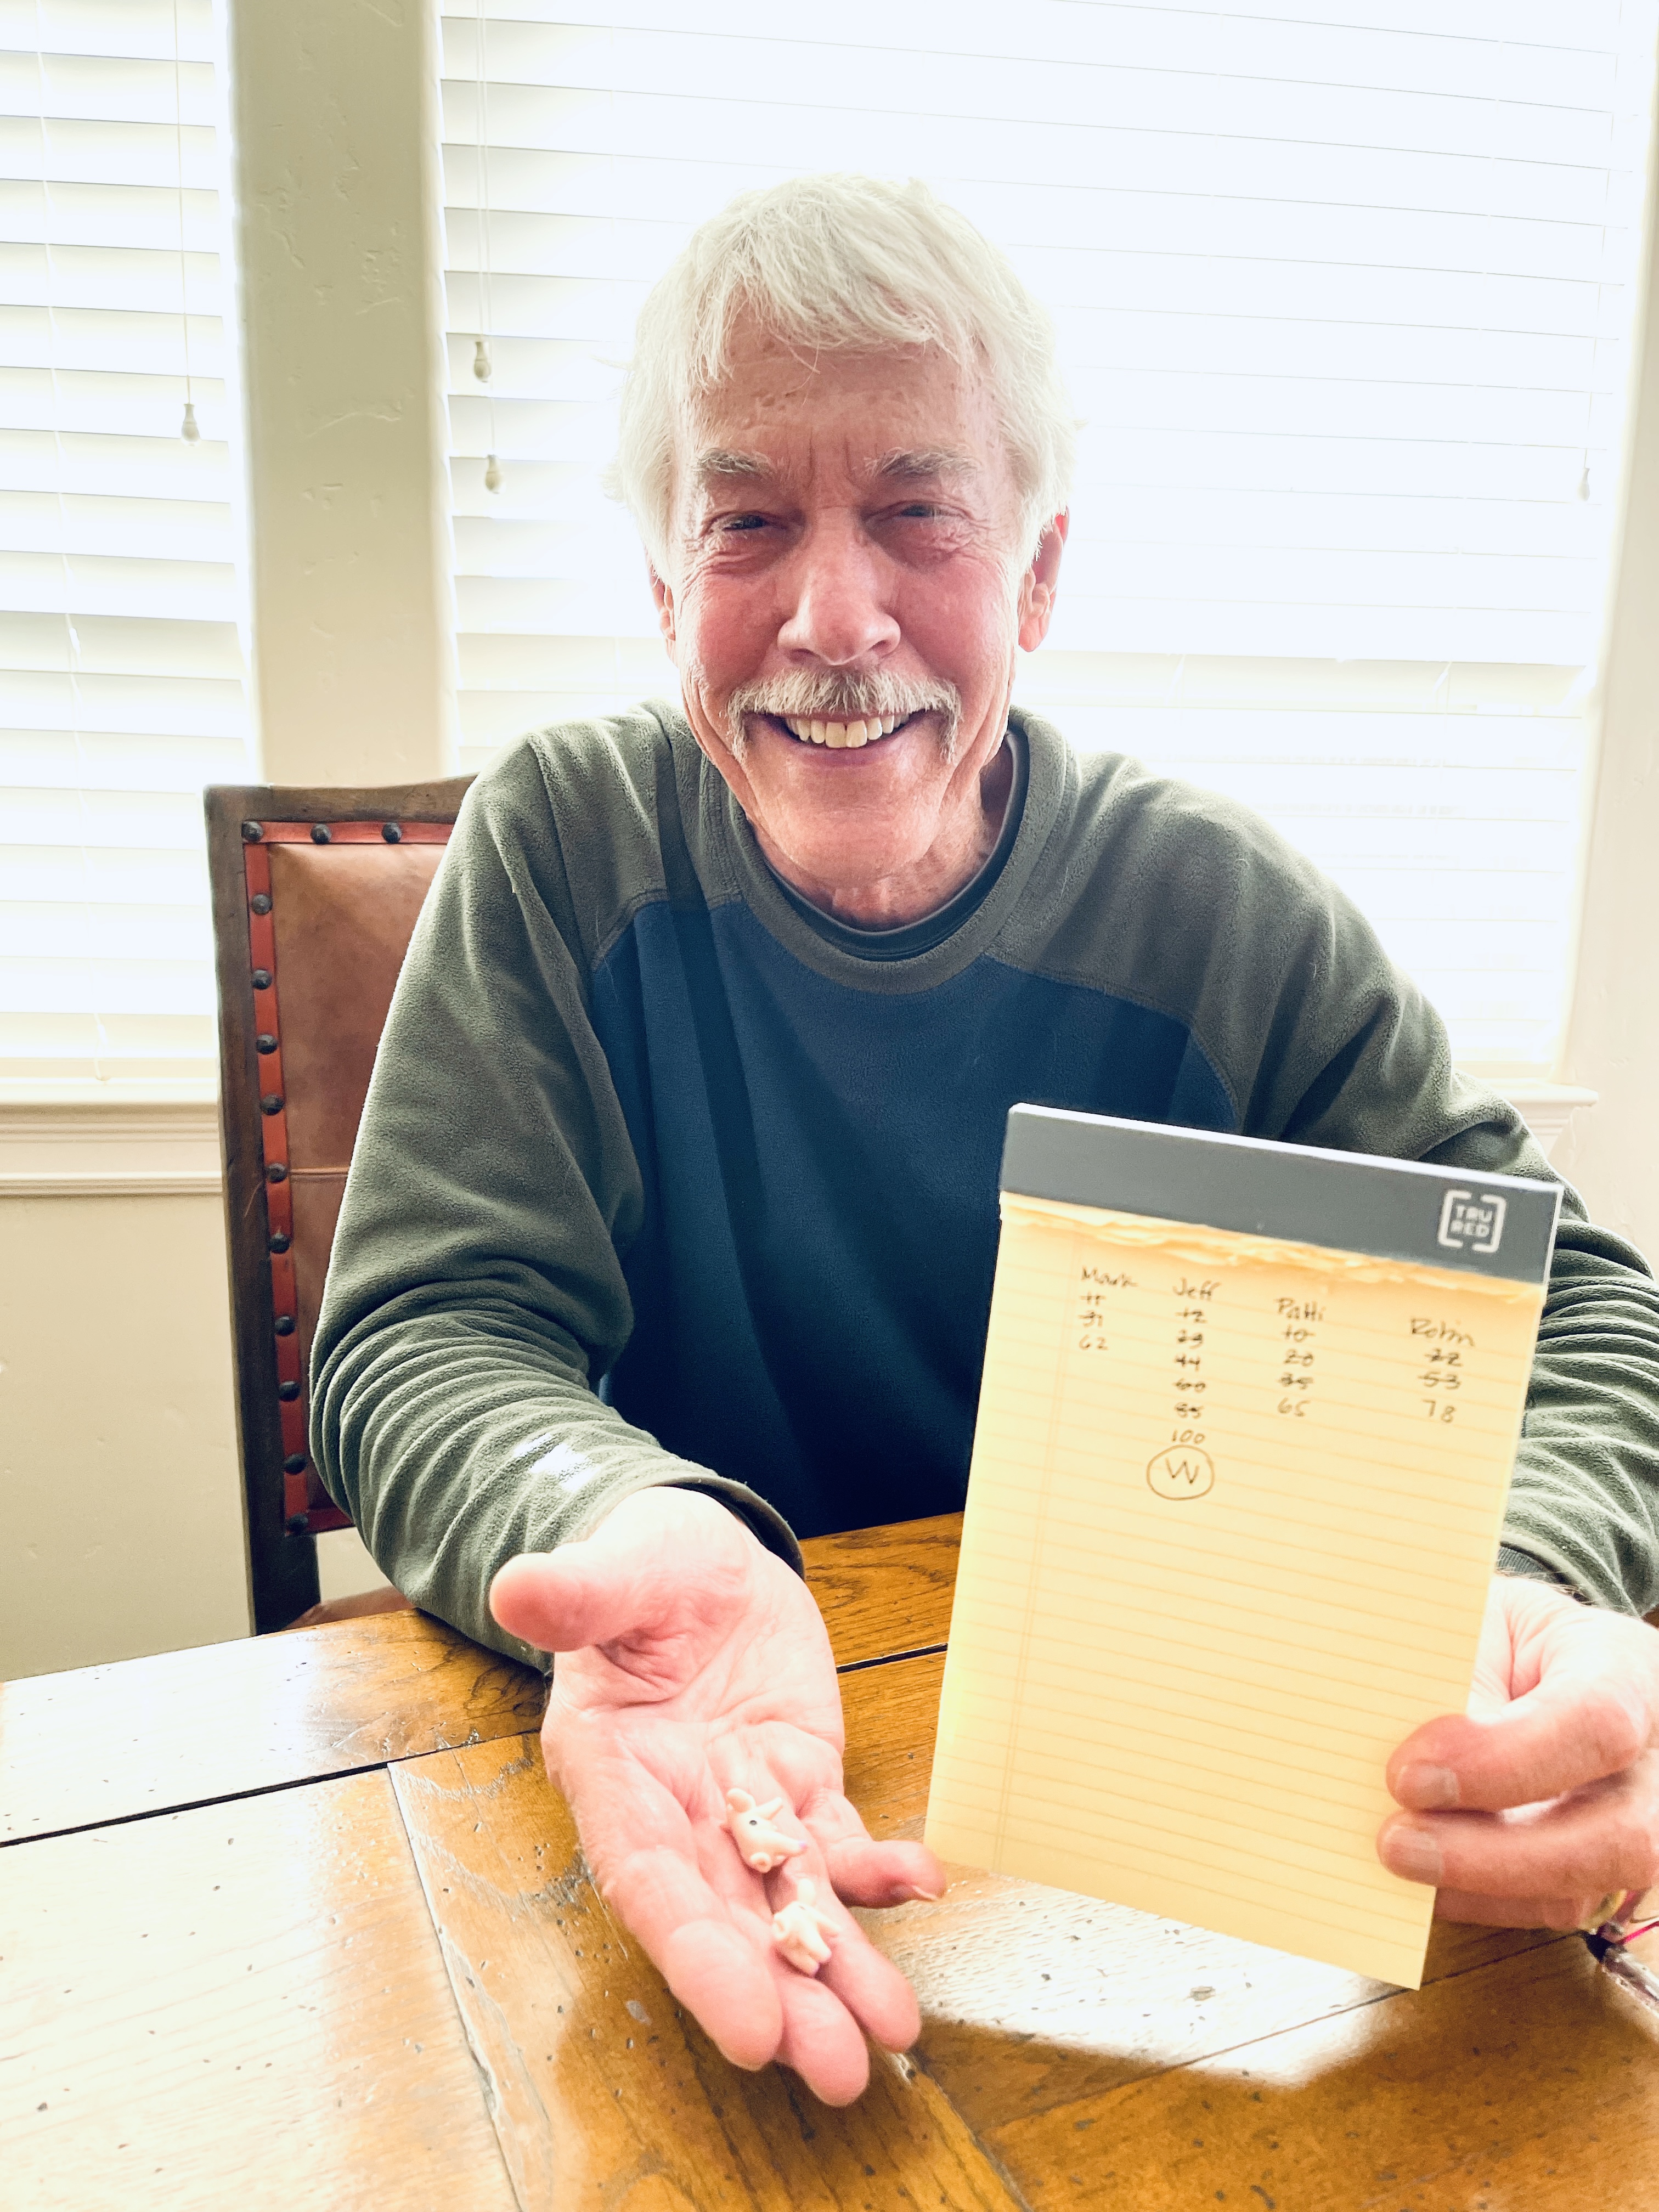 TRU
RED
Mark Jeff Patti Robin
11 12 10 22
31 23 20 53
62 44 35 78
60 65
85
100
W